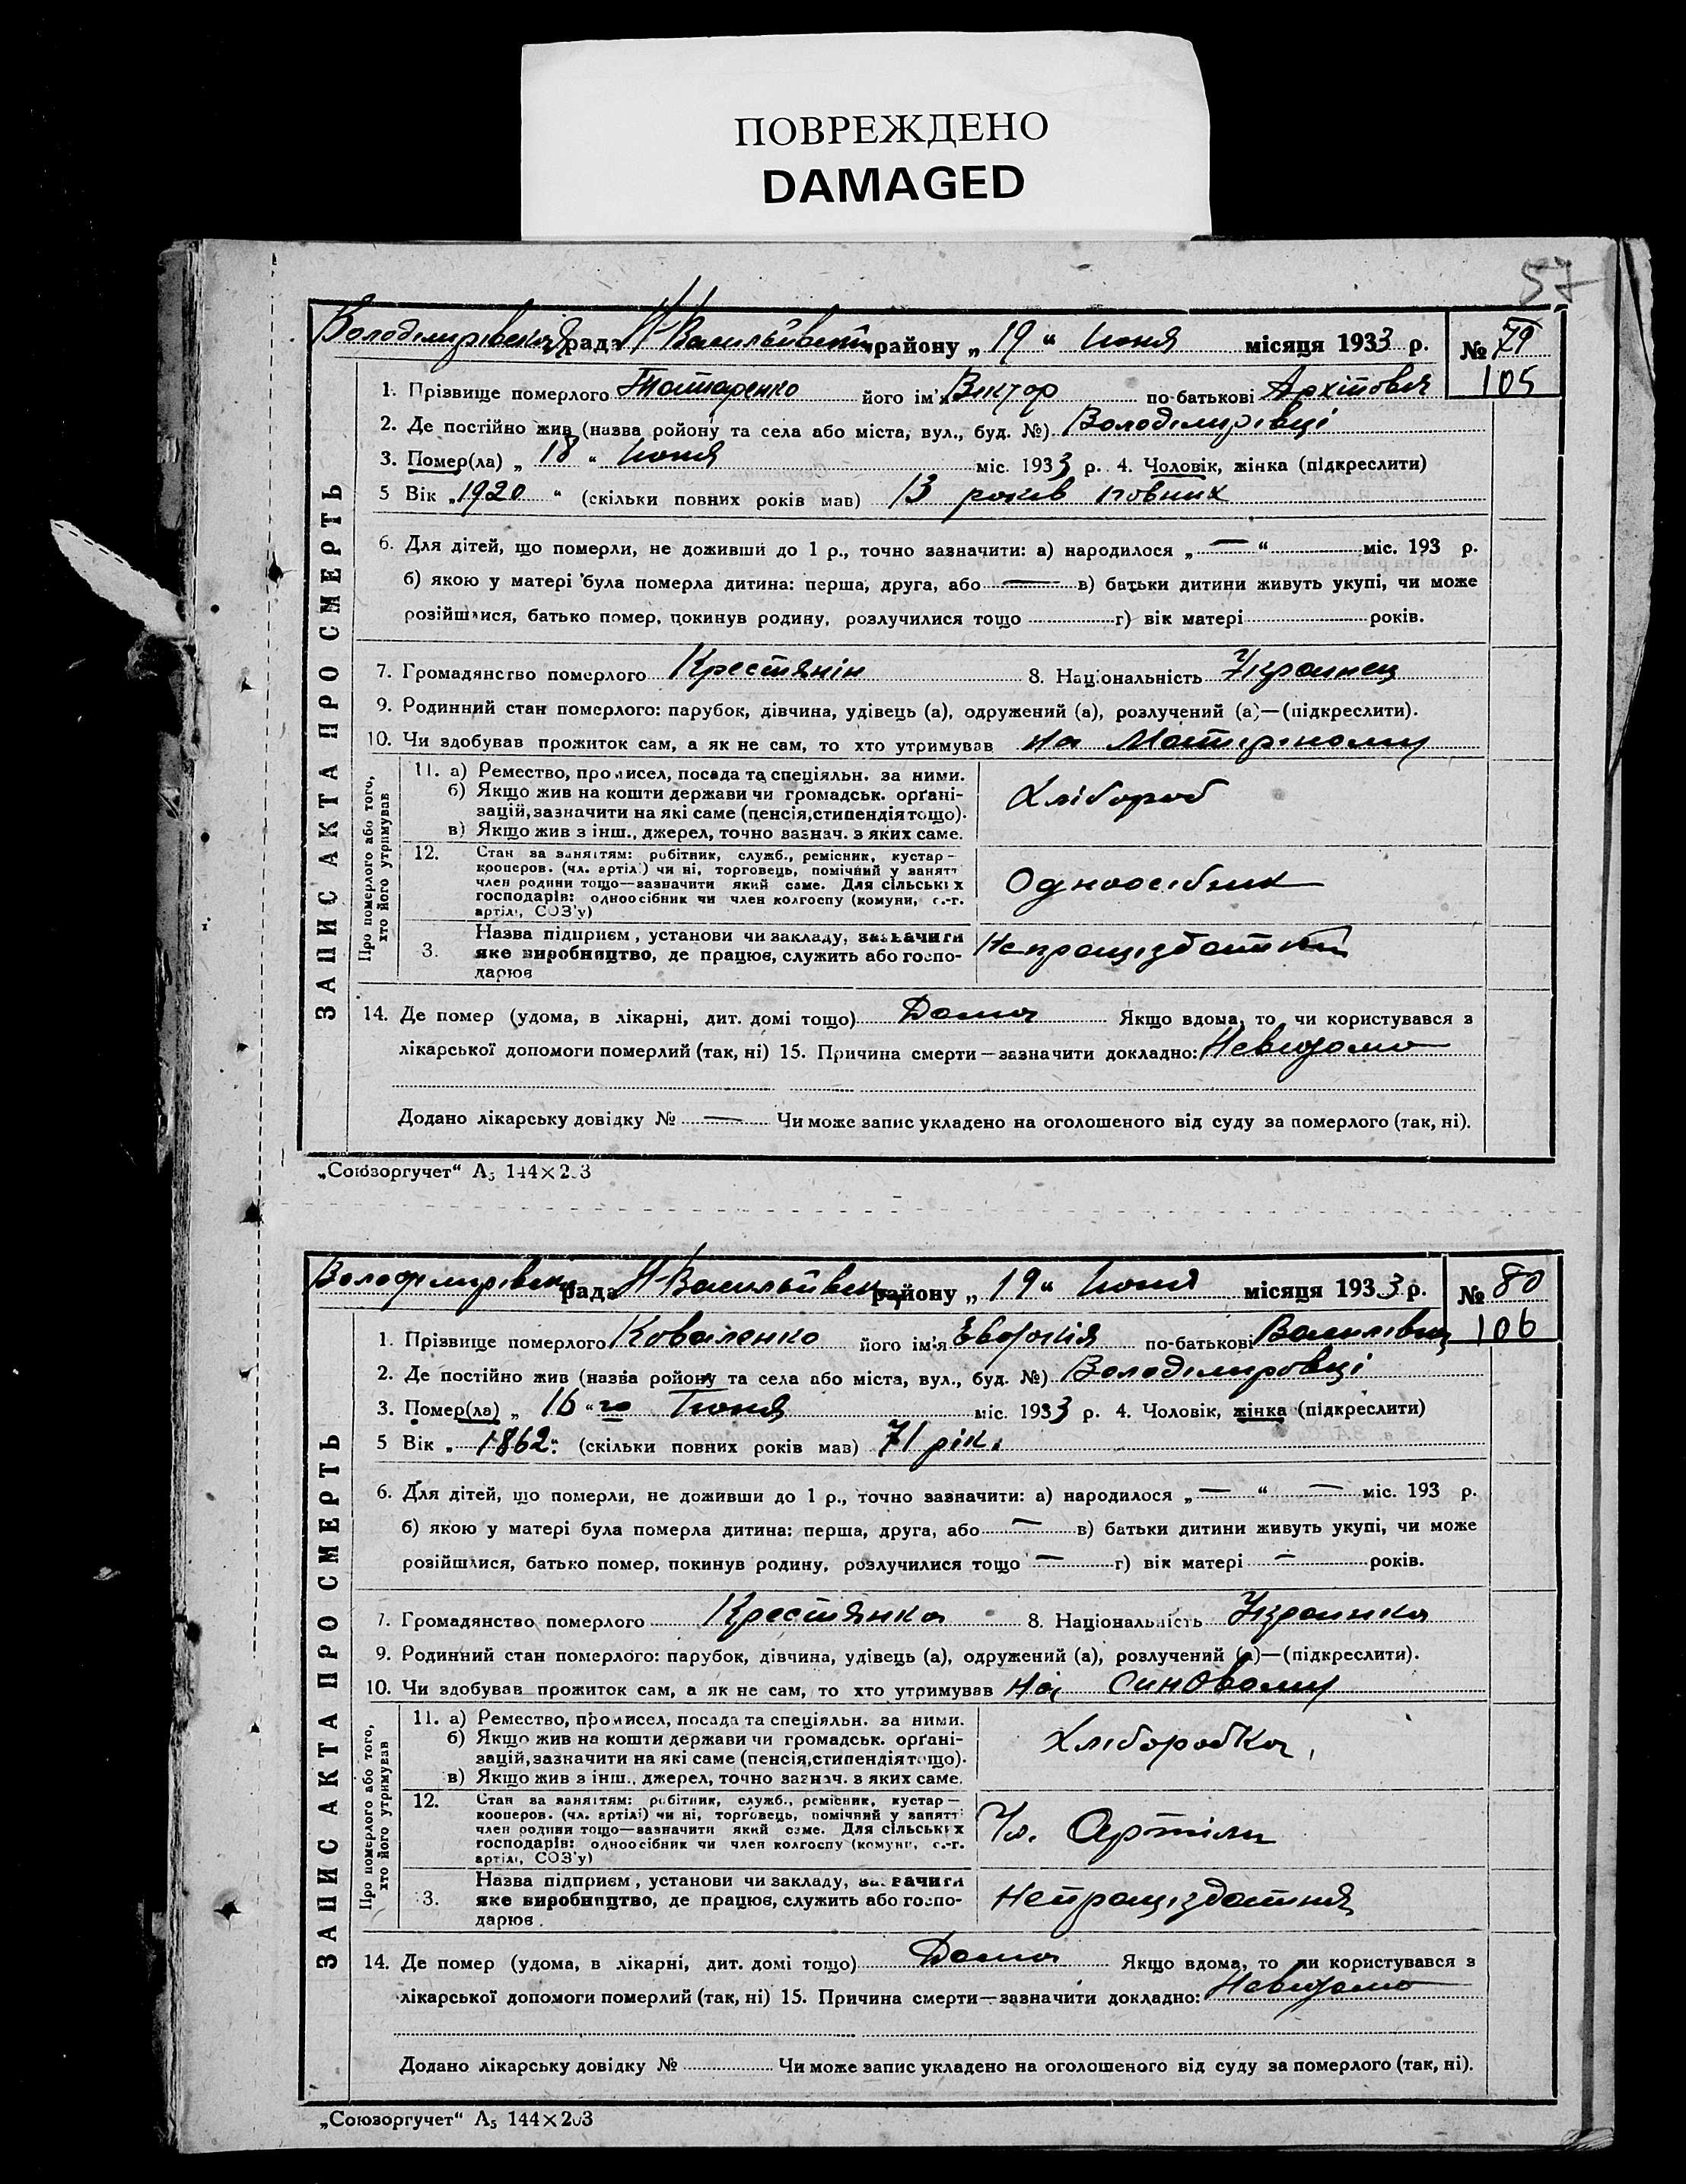 ПОВРЕЖДЕНО
DAMAGED
57
Володимирівська рада Н-Васильївськ району „ 19 “ Июня місяця 1933 р. № 79
105
1. Прізвище померлого Татаренко його ім'я Віктор по-батькові Архіпович
2. Де постійно жив (назва ройону та села або міста, вул., буд. №) Володимирівці
3. Помер(ла) „ 18 “ Июня міс. 1933 р. 4. Чоловік, жінка (підкреслити)
5 Вік „ 1920 “ (скільки повних років мав) 13 років повних
6. Для дітей, що померли, не доживши до 1 р., точно зазначити: а) народилося „ — “ міс. 193 р.
б) якою у матері була померла дитина: перша, друга, або — в) батьки дитини живуть укупі, чи може
розійшлися, батько помер, покинув родину, розлучилися тощо г) вік матері років.
7. Громадянство померлого Крестянін 8. Національність Українец
9. Родинний стан померлого: парубок, дівчина, удівець (а), одружений (а), розлучений (а)—(підкреслити).
10. Чи здобував прожиток сам, а як не сам, то хто утримував на Материному
ЗАПИС АКТА ПРО СМЕРТЬ
Про померлого або того,
хто його утримував
11. а) Ремество, промисел, посада та спеціяльн. за ними.
б) Якщо жив на кошти держави чи громадськ. орґані-
зацій, зазначити на які саме (пенсія, стипендія тощо).
в) Якщо жив з інш., джерел, точно зазнач. з яких саме.
Хлібороб
12. Стан за заняттям: робітник, служб., ремісник, кустар—
кооперов. (чл. артіл.) чи ні, торговець, помічний у занятт
член родини тощо—зазначити який саме. Для сільських
господарів: одноосібник чи член колгоспу (комуни, с.-г.
артілі, СОЗ'у)
Одноосібник
3. Назва підприєм, установи чи закладу, зазначити
яке виробництво, де працює, служить або госпо-
дарює
Непрацездатний
14. Де помер (удома, в лікарні, дит. домі тощо) Дома Якщо вдома, то чи користувався з
лікарської допомоги померлий (так, ні) 15. Причина смерти—зазначити докладно: Невидомо
Додано лікарську довідку № — Чи може запис укладено на оголошеного від суду за померлого (так, ні).
„Союзоргучет“ А5 144×203
Володимирівська рада Н-Васильївськ району „ 19 “ Июня місяця 1933 р. № 80
106
1. Прізвище померлого Коваленко його ім'я Евдокія по-батькові Васильівна
2. Де постійно жив (назва ройону та села або міста, вул., буд. №) Володимировці
3. Помер(ла) „ 16 “ го Июня міс. 1933 р. 4. Чоловік, жінка (підкреслити)
5 Вік „ 1862 “ (скільки повних років мав) 71 рік.
6. Для дітей, що померли, не доживши до 1 р., точно зазначити: а) народилося „ — “ — міс. 193 р.
б) якою у матері була померла дитина: перша, друга, або — в) батьки дитини живуть укупі, чи може
розійшлися, батько помер, покинув родину, розлучилися тощо — г) вік матері — років.
7. Громадянство померлого Крестянка 8. Національність Українка
9. Родинний стан померлого: парубок, дівчина, удівець (а), одружений (а), розлучений (а)—(підкреслити).
10. Чи здобував прожиток сам, а як не сам, то хто утримував на синовому
ЗАПИС АКТА ПРО СМЕРТЬ
Про померлого або того,
хто його утримував
11. а) Ремество, промисел, посада та спеціяльн. за ними.
б) Якщо жив на кошти держави чи громадськ. орґані-
зацій, зазначити на які саме (пенсія, стипендія тощо).
в) Якщо жив з інш., джерел, точно зазнач. з яких саме.
Хліборобка,
12. Стан за заняттям: робітник, служб., ремісник, кустар—
кооперов. (чл. артілі) чи ні, торговець, помічний у занятті
член родини тощо—зазначити який саме. Для сільських
господарів: одноосібник чи член колгоспу (комуни, с.-г.
артілі, СОЗ'у)
Чл. Артіли
3. Назва підприєм, установи чи закладу, зазначити
яке виробництво, де працює, служить або госпо-
дарює.
Непрацездатня
14. Де помер (удома, в лікарні, дит. домі тощо) Дома Якщо вдома, то чи користувався з
лікарської допомоги померлий (так, ні) 15. Причина смерти—зазначити докладно: Невидомо
Додано лікарську довідку № Чи може запис укладено на оголошеного від суду за померлого (так, ні).
„Союзоргучет“ А5 144×203